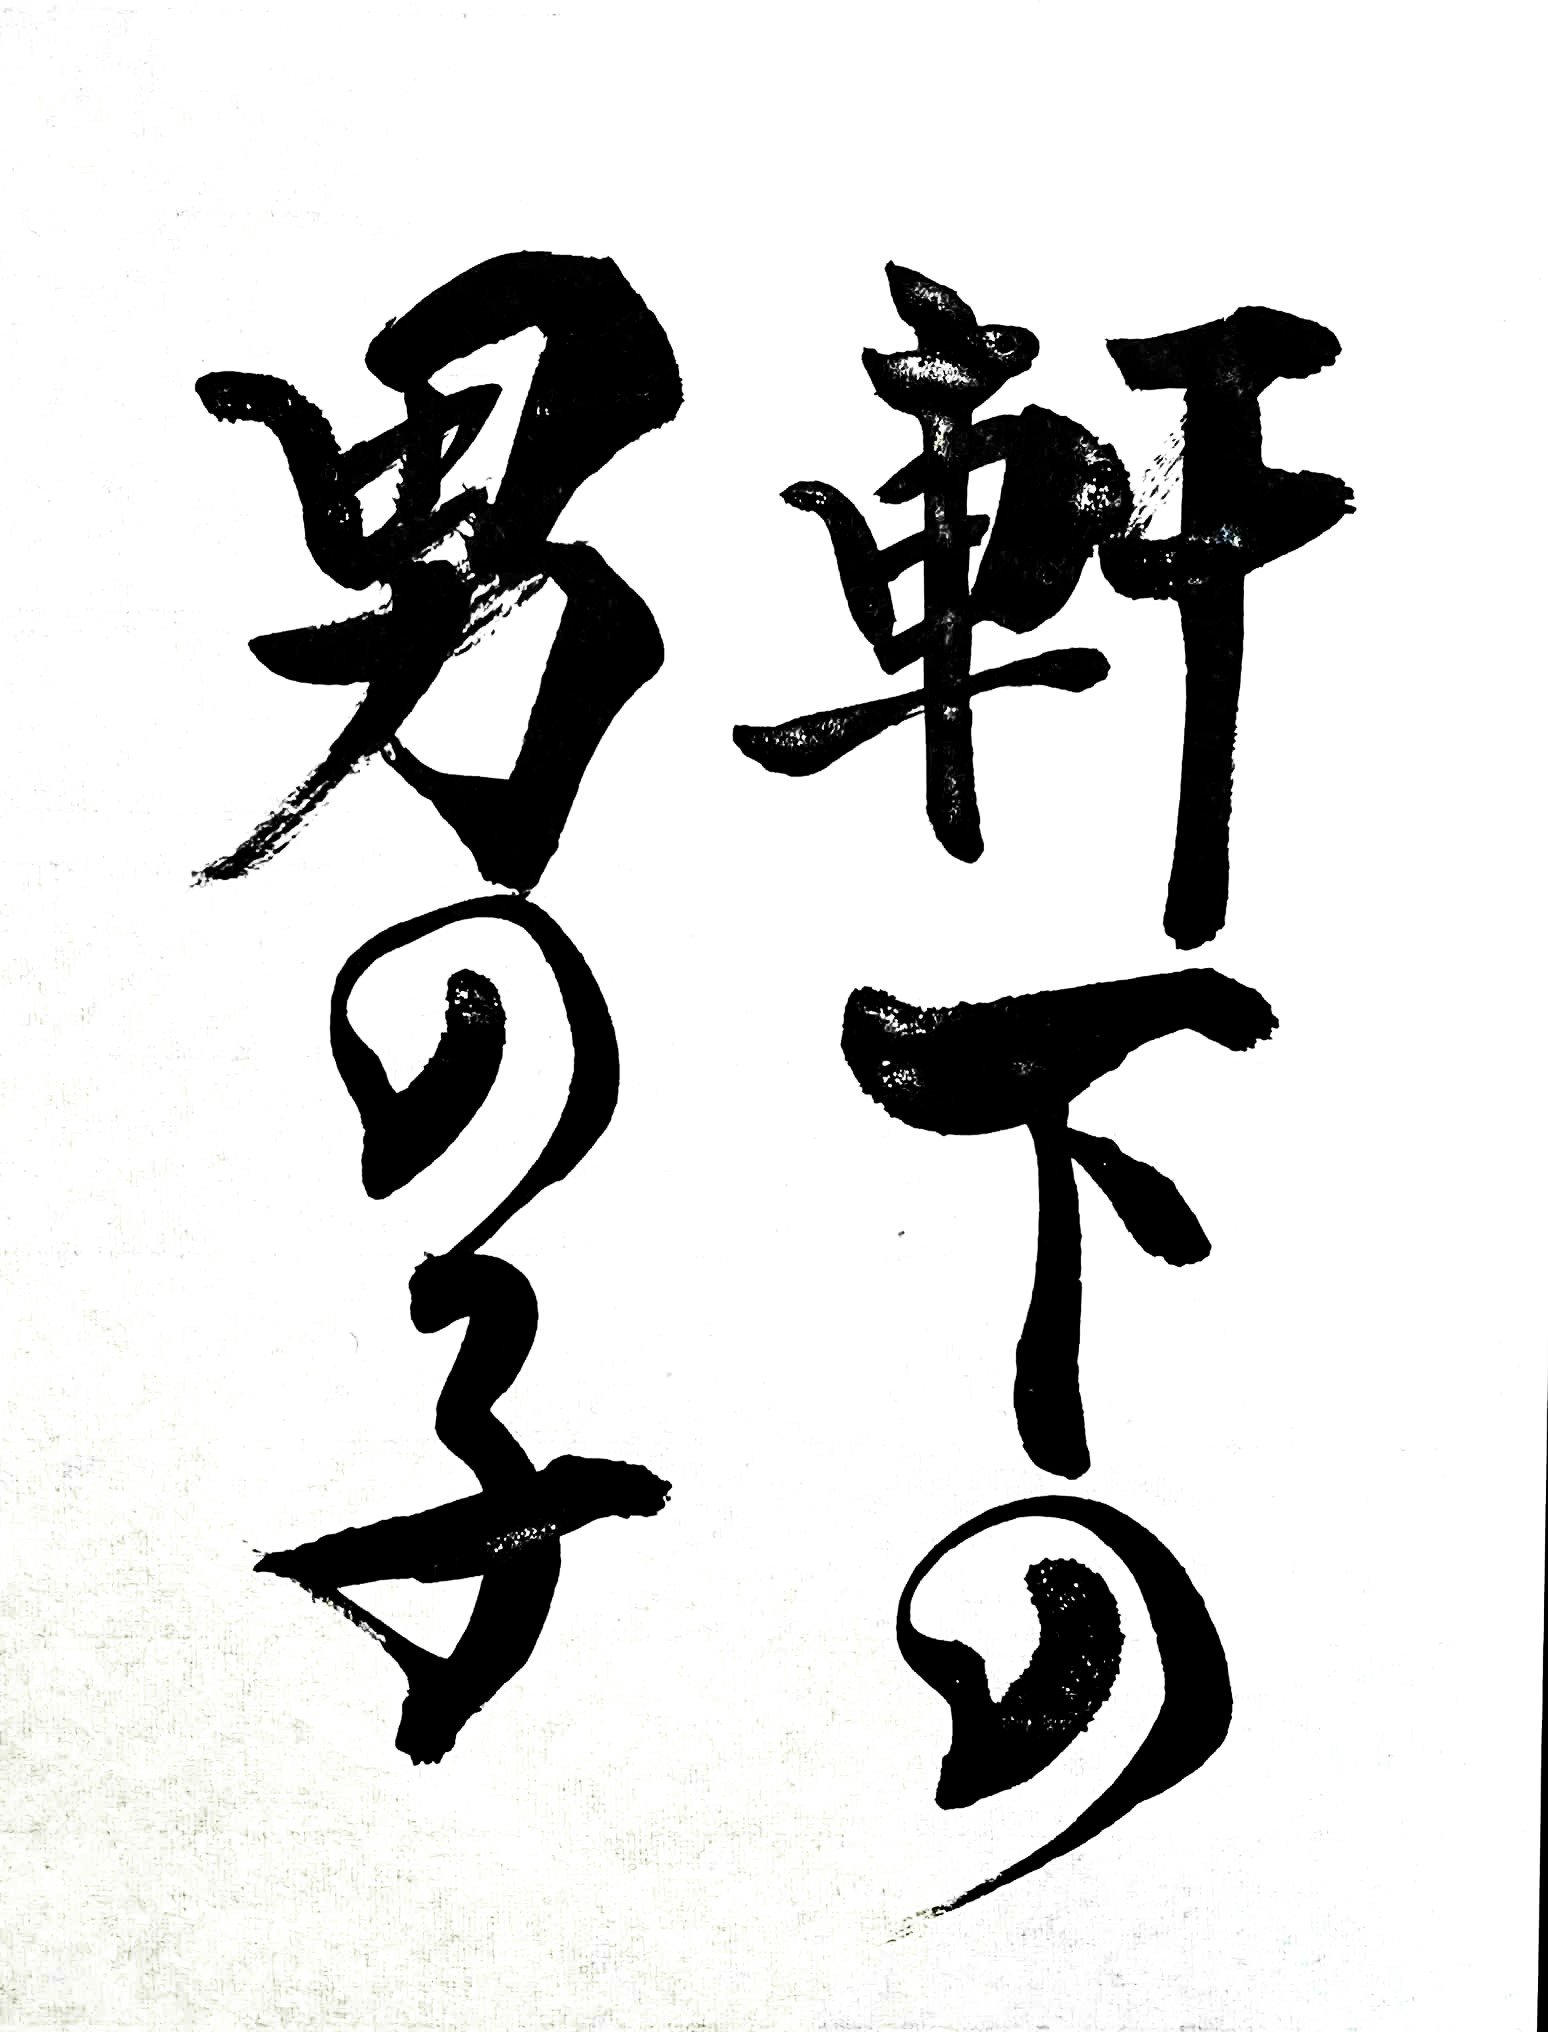 軒下の
男の子